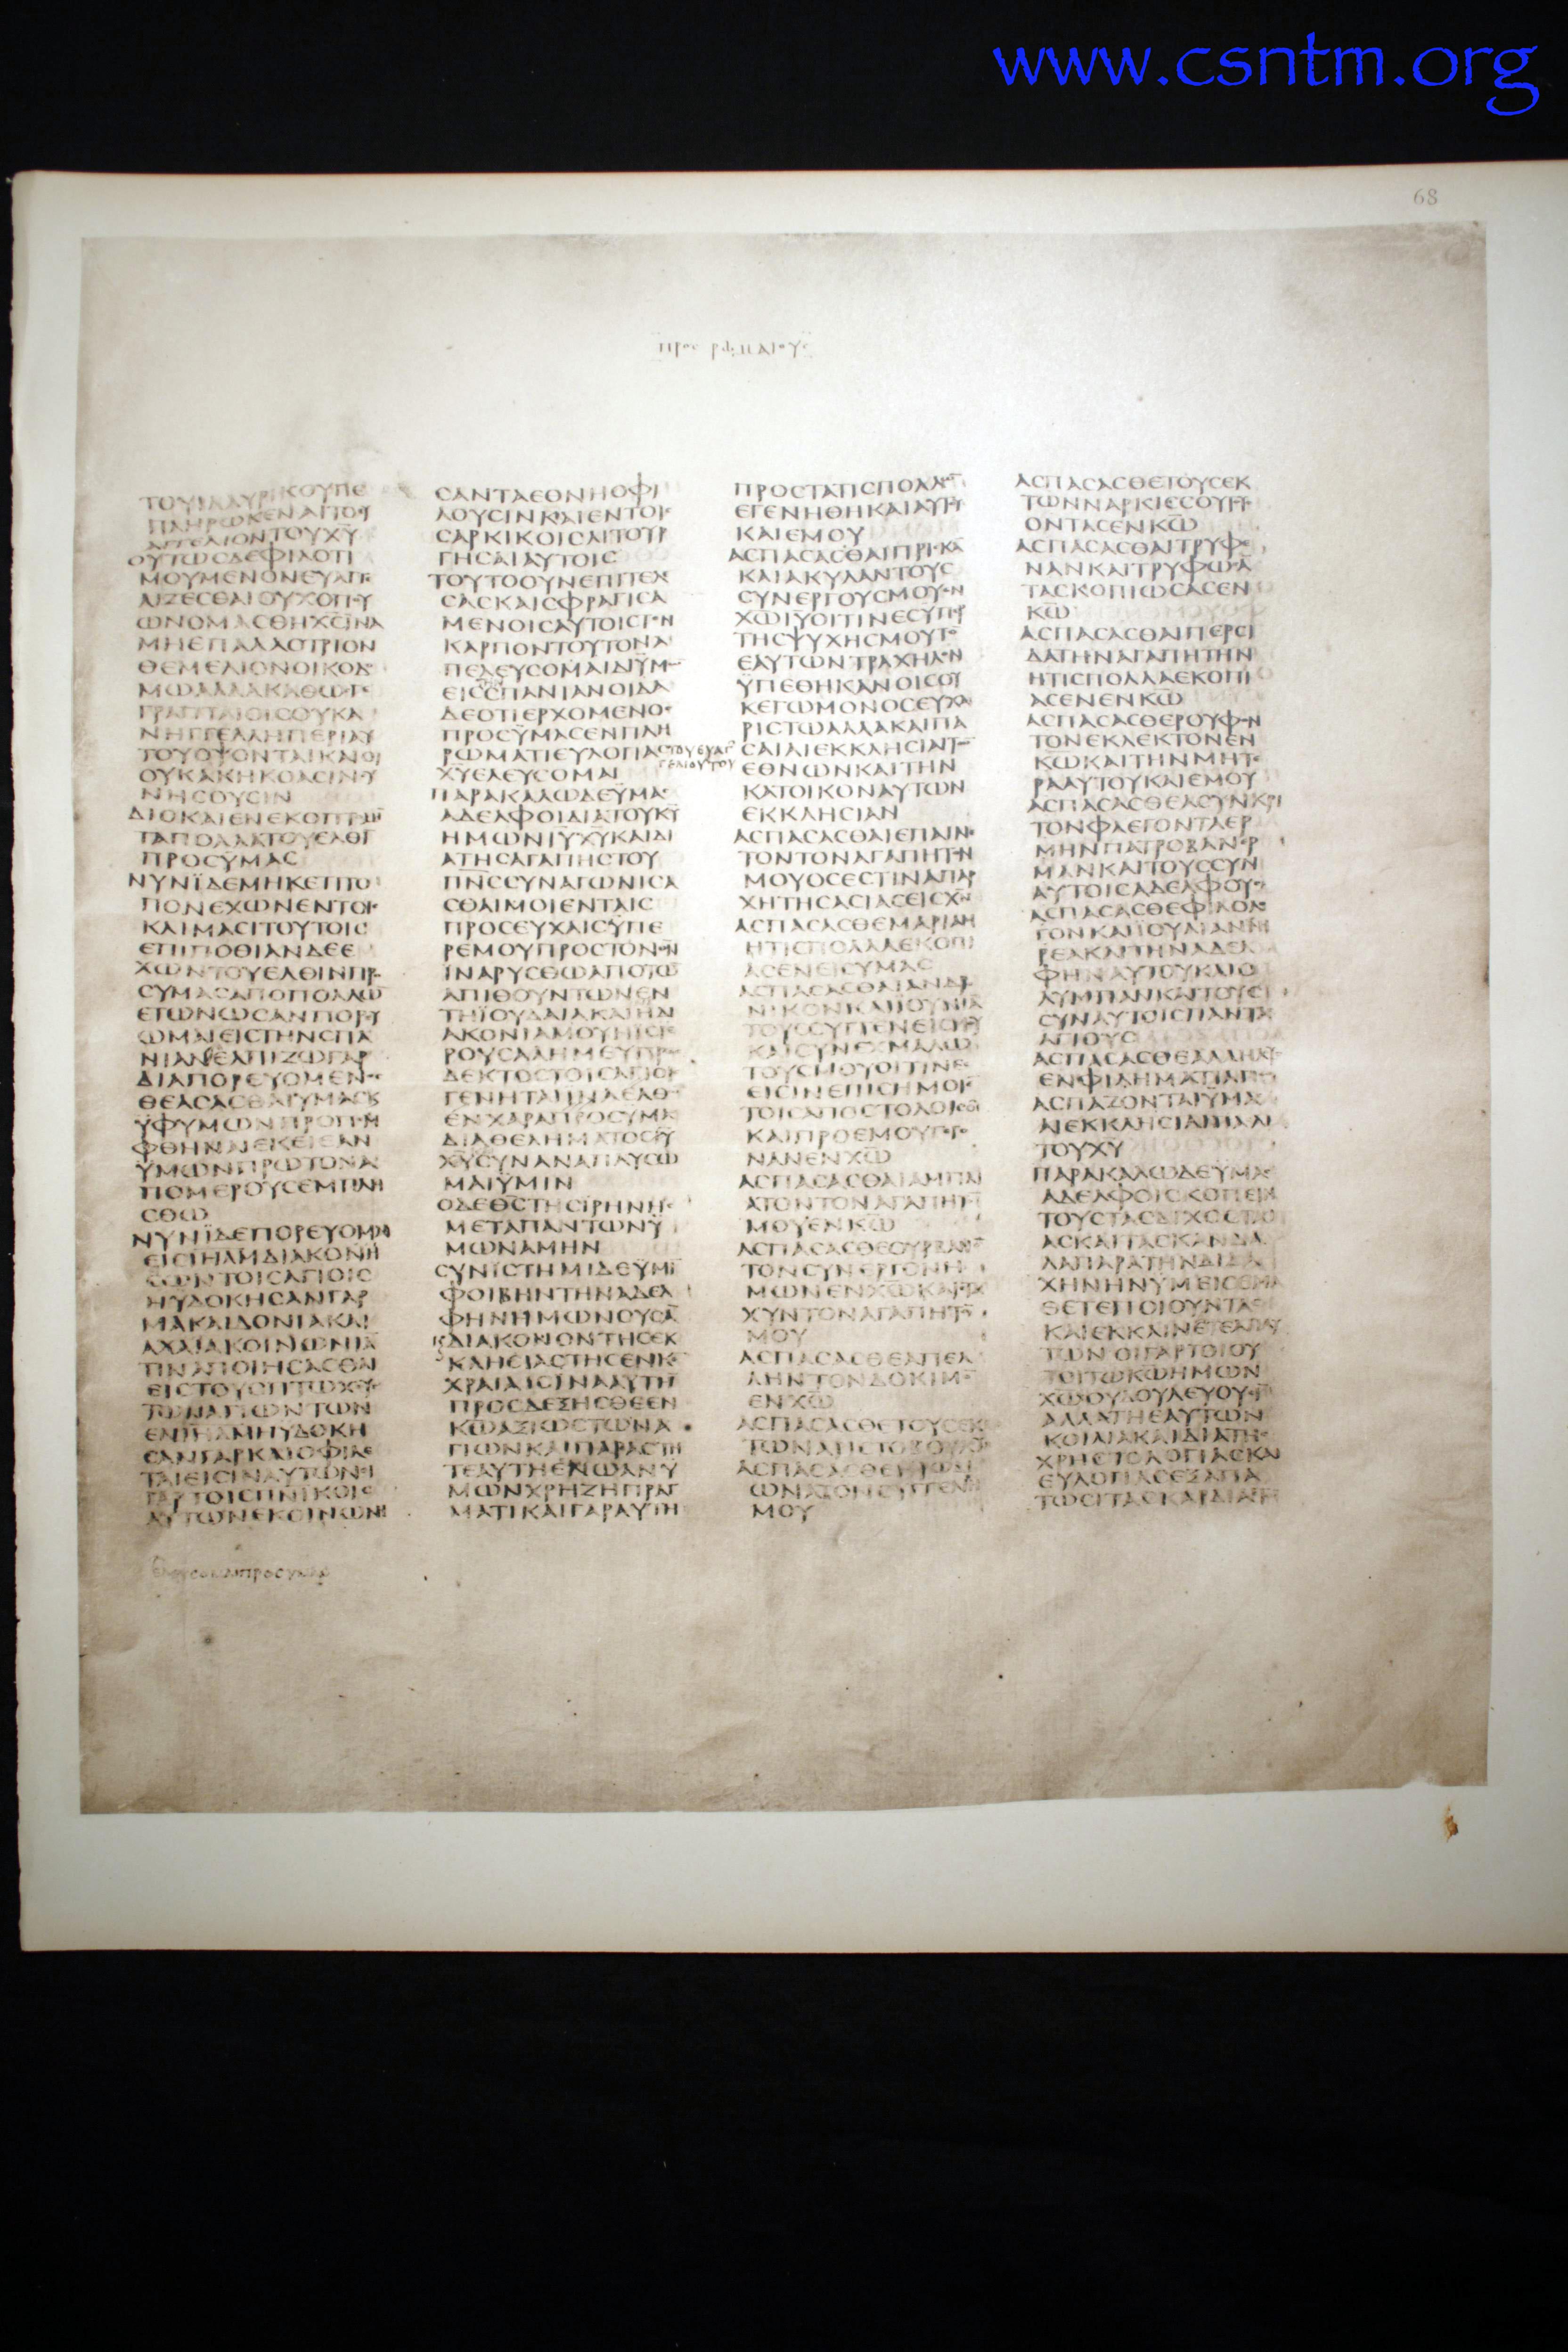 www.csntm.org
68
ΠΡΟϹ ΡΩΜΑΙΟΥϹ
ΤΟΥΙΛΛΥΡΙΚΟΥΠΕ
ΠΛΗΡΩΚΕΝΑΙΤΟΕΥ
ΑΓΓΕΛΙΟΝΤΟΥΧΥ
ΟΥΤΩϹΔΕΦΙΛΟΤΙ
ΜΟΥΜΕΝΟΝΕΥΑΓΓΕ
ΛΙΖΕϹΘΑΙΟΥΧΟΠΟΥ
ΩΝΟΜΑϹΘΗΧϹΙΝΑ
ΜΗΕΠΑΛΛΟΤΡΙΟΝ
ΘΕΜΕΛΙΟΝΟΙΚΟΔΟ
ΜΩΑΛΛΑΚΑΘΩϹΓΕ
ΓΡΑΠΤΑΙΟΙϹΟΥΚΑ
ΝΗΓΓΕΛΗΠΕΡΙΑΥ
ΤΟΥΟΨΟΝΤΑΙΚΑΙΟΙ
ΟΥΚΑΚΗΚΟΑϹΙΝϹΥ
ΝΗϹΟΥϹΙΝ
ΔΙΟΚΑΙΕΝΕΚΟΠΤΟΜΗ
ΤΑΠΟΛΛΑΤΟΥΕΛΘΙ
ΠΡΟϹΥΜΑϹ
ΝΥΝΪΔΕΜΗΚΕΤΙΤΟ
ΠΟΝΕΧΩΝΕΝΤΟΙϹ
ΚΛΙΜΑϹΙΤΟΥΤΟΙϹ
ΕΠΙΠΟΘΙΑΝΔΕΕ
ΧΩΝΤΟΥΕΛΘΙΝΠΡΟ
ϹΥΜΑϹΑΠΟΠΟΛΛΩ
ΕΤΩΝΩϹΑΝΠΟΡΕΥ
ΩΜΑΙΕΙϹΤΗΝϹΠΑ
ΝΙΑΝΕΛΠΙΖΩΓΑΡ
ΔΙΑΠΟΡΕΥΟΜΕΝΟϹ
ΘΕΑϹΑϹΘΑΙΥΜΑϹΚ
ΫΦΥΜΩΝΠΡΟΠΕΜ
ΦΘΗΝΑΙΕΚΕΙΕΑΝ
ΥΜΩΝΠΡΩΤΟΝΑ
ΠΟΜΕΡΟΥϹΕΜΠΛΗ
ϹΘΩ
ΝΥΝΪΔΕΠΟΡΕΥΟΜΑΙ
ΕΙϹΙΗΛΜΔΙΑΚΟΝΗ
ϹΩΝΤΟΙϹΑΓΙΟΙϹ
ΗΥΔΟΚΗϹΑΝΓΑΡ
ΜΑΚΑΙΔΟΝΙΑΚΑΙ
ΑΧΑΙΑΚΟΙΝΩΝΙΑ
ΤΙΝΑΠΟΙΗϹΑϹΘΑΙ
ΕΙϹΤΟΥϹΠΤΩΧΟΥϹ
ΤΩΝΑΓΙΩΝΤΩΝ
ΕΝΙΗΛΜΗΥΔΟΚΗ
ϹΑΝΓΑΡΚΑΙΟΦΙΛΕ
ΤΑΙΕΙϹΙΝΑΥΤΩΝΕΙ
ΓΑΡΤΟΙϹΠΝΙΚΟΙϹ
ΑΥΤΩΝΕΚΟΙΝΩΝΗ
ΕΛΕΥϹΟΜΑΙΠΡΟϹΥΜΑϹ
ϹΑΝΤΑΕΘΝΗΟΦΙ
ΛΟΥϹΙΝΚΑΙΕΝΤΟΙϹ
ϹΑΡΚΙΚΟΙϹΛΙΤΟΥΡ
ΓΗϹΑΙΑΥΤΟΙϹ
ΤΟΥΤΟΟΥΝΕΠΙΤΕΛΕ
ϹΑϹΚΑΙϹΦΡΑΓΙϹΑ
ΜΕΝΟΙϹΑΥΤΟΙϹΤΟΝ
ΚΑΡΠΟΝΤΟΥΤΟΝΑ
ΠΕΛΕΥϹΟΜΑΙΔΙΫΜΩ
ΕΙϹϹΠΑΝΙΑΝΟΙΔΑ
ΤΗΝ
ΔΕΟΤΙΕΡΧΟΜΕΝΟϹ
ΠΡΟϹΥΜΑϹΕΝΠΛΗ
ΡΩΜΑΤΙΕΥΛΟΓΙΑϹ
ΤΟΥΕΥΑΓ
ΓΕΛΙΟΥΤΟΥ
ΧΥΕΛΕΥϹΟΜΑΙ
ΠΑΡΑΚΑΛΩΔΕΫΜΑϹ
ΑΔΕΛΦΟΙΔΙΑΤΟΥΚΥ
ΗΜΩΝΙΥΧΥΚΑΙΔΙ
ΑΤΗϹΑΓΑΠΗϹΤΟΥ
ΠΝϹϹΥΝΑΓΩΝΙϹΑ
ϹΘΑΙΜΟΙΕΝΤΑΙϹ
ΠΡΟϹΕΥΧΑΙϹΫΠΕ
ΡΕΜΟΥΠΡΟϹΤΟΝΘΝ
ΪΝΑΡΥϹΘΩΑΠΟΤΩ
ΑΠΙΘΟΥΝΤΩΝΕΝ
ΤΗΪΟΥΔΑΙΑΚΑΙΗΔΙ
ΑΚΟΝΙΑΜΟΥΗΕΙϹΙΕ
ΡΟΥϹΑΛΗΜΕΥΠΡΟϹ
ΔΕΚΤΟϹΤΟΙϹΑΓΙΟΙϹ
ΓΕΝΗΤΑΙΙΝΑΕΛΘΩ
ΕΝΧΑΡΑΠΡΟϹΥΜΑϹ
ΔΙΑΘΕΛΗΜΑΤΟϹΙΥ
ΧΥϹΥΝΑΝΑΠΑΥϹΩ
ΜΑΙΫΜΙΝ
ΟΔΕΘϹΤΗϹΙΡΗΝΗϹ
ΜΕΤΑΠΑΝΤΩΝΫ
ΜΩΝΑΜΗΝ
ϹΥΝΪϹΤΗΜΙΔΕΫΜΙ
ΦΟΙΒΗΝΤΗΝΑΔΕΛ
ΦΗΝΗΜΩΝΟΥϹΑ
ΔΙΑΚΟΝΟΝΤΗϹΕΚ
ΚΛΗϹΙΑϹΤΗϹΕΝΚΕ
ΧΡΑΙΑΙϹΙΝΑΑΥΤΗ
ΠΡΟϹΔΕΞΗϹΘΕΕΝ
ΚΩΑΞΙΩϹΤΩΝΑ
ΓΙΩΝΚΑΙΠΑΡΑϹΤΗ
ΤΕΑΥΤΗΕΝΩΑΝΥ
ΜΩΝΧΡΗΖΗΠΡΑΓ
ΜΑΤΙΚΑΙΓΑΡΑΥΤΗ
ΠΡΟϹΤΑΤΙϹΠΟΛΛΩ
ΕΓΕΝΗΘΗΚΑΙΑΥΤΟΥ
ΚΑΙΕΜΟΥ
ΑϹΠΑϹΑϹΘΑΙΠΡΙϹΚΑ
ΚΑΙΑΚΥΛΑΝΤΟΥϹ
ϹΥΝΕΡΓΟΥϹΜΟΥΕΝ
ΧΩΙΥΟΙΤΙΝΕϹΥΠΕΡ
ΤΗϹΨΥΧΗϹΜΟΥΤΟ
ΕΑΥΤΩΝΤΡΑΧΗΛΟΝ
ΫΠΕΘΗΚΑΝΟΙϹΟΥ
ΚΕΓΩΜΟΝΟϹΕΥΧΑ
ΡΙϹΤΩΑΛΛΑΚΑΙΠΑ
ϹΑΙΑΙΕΚΚΛΗϹΙΑΙΤΩ
ΕΘΝΩΝΚΑΙΤΗΝ
ΚΑΤΟΙΚΟΝΑΥΤΩΝ
ΕΚΚΛΗϹΙΑΝ
ΑϹΠΑϹΑϹΘΑΙΕΠΑΙΝΕ
ΤΟΝΤΟΝΑΓΑΠΗΤΟΝ
ΜΟΥΟϹΕϹΤΙΝΑΠΑΡ
ΧΗΤΗϹΑϹΙΑϹΕΙϹΧΝ
ΑϹΠΑϹΑϹΘΕΜΑΡΙΑΜ
ΗΤΙϹΠΟΛΛΑΕΚΟΠΙ
ΑϹΕΝΕΙϹΥΜΑϹ
ΑϹΠΑϹΑϹΘΑΙΑΝΔΡΟ
ΝΙΚΟΝΚΑΙΙΟΥΝΙΑ
ΤΟΥϹϹΥΓΓΕΝΕΙϹΜΟΥ
ΚΑΙϹΥΝΕΧΜΑΛΩ
ΤΟΥϹΜΟΥΟΙΤΙΝΕϹ
ΕΙϹΙΝΕΠΙϹΗΜΟΙΕ
ΤΟΙϹΑΠΟϹΤΟΛΟΙϹΟΙ
ΚΑΙΠΡΟΕΜΟΥΓΕΓΟ
ΝΑΝΕΝΧΩ
ΑϹΠΑϹΑϹΘΑΙΑΜΠΛΙ
ΑΤΟΝΤΟΝΑΓΑΠΗΤΟ
ΜΟΥΕΝΚΩ
ΑϹΠΑϹΑϹΘΕΟΥΡΒΑΝΟ
ΤΟΝϹΥΝΕΡΓΟΝΗ
ΜΩΝΕΝΧΩΚΑΙϹΤΑ
ΧΥΝΤΟΝΑΓΑΠΗΤΟ
ΜΟΥ
ΑϹΠΑϹΑϹΘΕΑΠΕΛ
ΛΗΝΤΟΝΔΟΚΙΜΟ
ΕΝΧΩ
ΑϹΠΑϹΑϹΘΕΤΟΥϹΕΚ
ΤΩΝΑΡΙϹΤΟΒΟΥΛΟΥ
ΑϹΠΑϹΑϹΘΕΗΡΩΔΙ
ΩΝΑΤΟΝϹΥΓΓΕΝΗ
ΜΟΥ
ΑϹΠΑϹΑϹΘΕΤΟΥϹΕΚ
ΤΩΝΝΑΡΚΙϹϹΟΥΤΟΥϹ
ΟΝΤΑϹΕΝΚΩ
ΑϹΠΑϹΑϹΘΑΙΤΡΥΦΑΙ
ΝΑΝΚΑΙΤΡΥΦΩϹΑ
ΤΑϹΚΟΠΙΩϹΑϹΕΝ
ΚΩ
ΑϹΠΑϹΑϹΘΑΙΠΕΡϹΙ
ΔΑΤΗΝΑΓΑΠΗΤΗΝ
ΗΤΙϹΠΟΛΛΑΕΚΟΠΙ
ΑϹΕΝΕΝΚΩ
ΑϹΠΑϹΑϹΘΕΡΟΥΦΟΝ
ΤΟΝΕΚΛΕΚΤΟΝΕΝ
ΚΩΚΑΙΤΗΝΜΗΤΕ
ΡΑΑΥΤΟΥΚΑΙΕΜΟΥ
ΑϹΠΑϹΑϹΘΕΑϹΥΝΚΡΙ
ΤΟΝΦΛΕΓΟΝΤΑΕΡ
ΜΗΝΠΑΤΡΟΒΑΝΕΡ
ΜΑΝΚΑΙΤΟΥϹϹΥΝ
ΑΥΤΟΙϹΑΔΕΛΦΟΥϹ
ΑϹΠΑϹΑϹΘΕΦΙΛΟΛΟ
ΓΟΝΚΑΙΙΟΥΛΙΑΝΝΗ
ΡΕΑΚΑΙΤΗΝΑΔΕΛ
ΦΗΝΑΥΤΟΥΚΑΙΟ
ΛΥΜΠΑΝΚΑΙΤΟΥϹ
ϹΥΝΑΥΤΟΙϹΠΑΝΤΑϹ
ΑΓΙΟΥϹ
ΑϹΠΑϹΑϹΘΕΑΛΛΗΛΟΥϹ
ΕΝΦΙΛΗΜΑΤΙΑΓΙΩ
ΑϹΠΑΖΟΝΤΑΙΥΜΑϹ
ΑΙΕΚΚΛΗϹΙΑΙΠΑϹΑΙ
ΤΟΥΧΥ
ΠΑΡΑΚΑΛΩΔΕΫΜΑϹ
ΑΔΕΛΦΟΙϹΚΟΠΕΙΝ
ΤΟΥϹΤΑϹΔΙΧΟϹΤΑϹΙ
ΑϹΚΑΙΤΑϹΚΑΝΔΑ
ΛΑΠΑΡΑΤΗΝΔΙΔΑ
ΧΗΝΗΝΥΜΕΙϹΕΜΑ
ΘΕΤΕΠΟΙΟΥΝΤΑϹ
ΚΑΙΕΚΚΛΙΝΕΤΕΑΠΑΥ
ΤΩΝΟΙΓΑΡΤΟΙΟΥ
ΤΟΙΤΩΚΩΗΜΩΝ
ΧΩΟΥΔΟΥΛΕΥΟΥϹΙ
ΑΛΛΑΤΗΕΑΥΤΩΝ
ΚΟΙΛΙΑΚΑΙΔΙΑΤΗϹ
ΧΡΗϹΤΟΛΟΓΙΑϹΚΑΙ
ΕΥΛΟΓΙΑϹΕΞΑΠΑ
ΤΩϹΙΤΑϹΚΑΡΔΙΑϹ